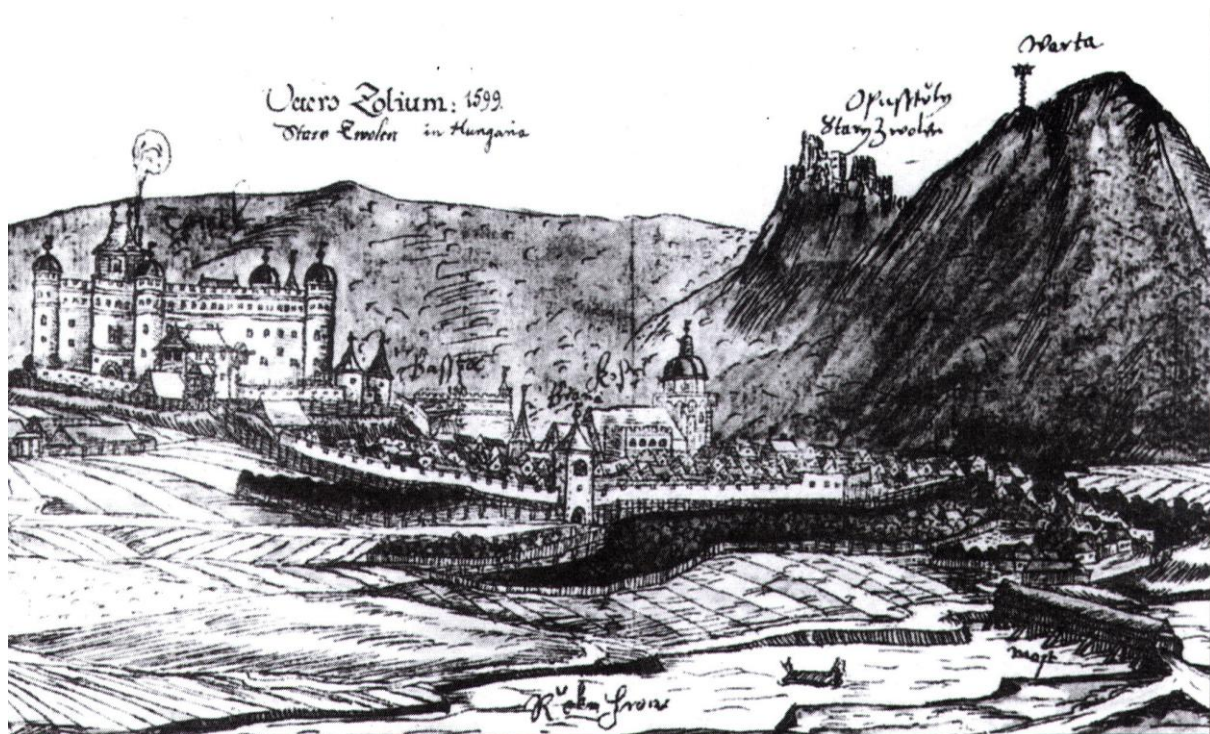 Veters Zolium: 1599.
Stare Zwolen in Hungaria
Warta
Opusstěly
Stary Zwolen
Bassta
Brana
Kostel
most
Řeka Hron